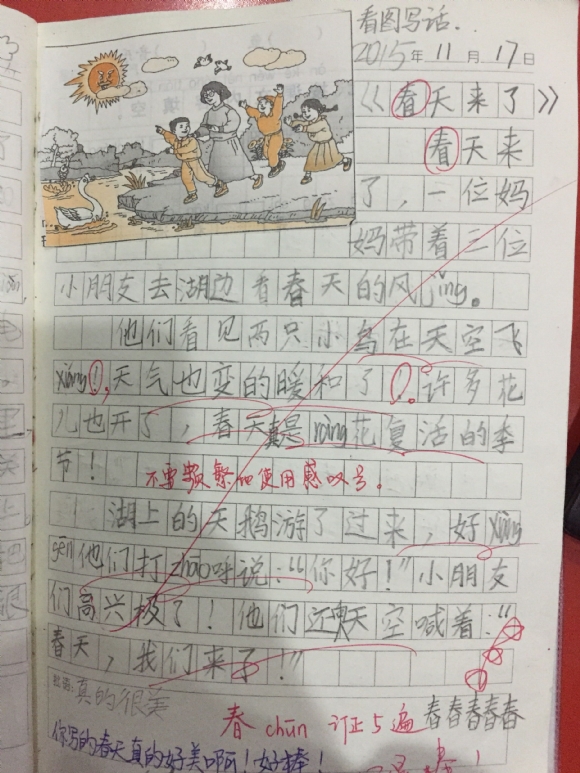 看图写话.
2015年11月17日
《春天来了》
春天来
了，一位妈
妈带着三位
小朋友去湖边看春天的风jǐng。
他们看见两只小鸟在天空飞
xiáng!，天气也变的暖和了!。许多花
儿也开了，春天真是ràng花复活的季
节！
不要频繁的使用感叹号。
湖上的天鹅游了过来，好xiàng
gēn他们打zhāo呼说：“你好！”小朋友
们高兴极了！他们还对天空喊着：“
春天，我们来了！”
真的很美
春 chūn 订正5遍 春春春春春
你写的春天真的好美啊！好棒！